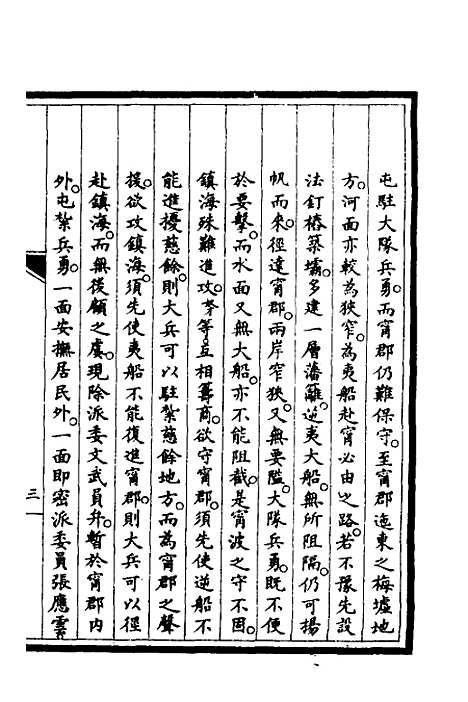 屯駐大隊兵勇。而甯郡仍難保守。至甯郡迤東之梅墟地
方。河面亦較為狹窄。為夷船赴甯必由之路。若不豫先設
法釘樁築壩。多建一層藩籬。逆夷大船。無所阻隔。仍可揚
帆而來。徑達甯郡。兩岸窄狹。又無要隘。大隊兵勇。既不便
於要擊。而水面又無大船。亦不能阻截。是甯波之守不固。
鎮海殊難進攻。等互相籌商。欲守甯郡。須先使逆船不
能進擾慈餘。則大兵可以駐紮慈餘地方。而為甯郡之聲
援。欲攻鎮海。須先使夷船不能復進甯郡。則大兵可以徑
赴鎮海。而無後顧之虞。現除派委文武員弁。暫於甯郡內
外。屯紮兵勇。一面安撫居民外。一面即密派委員張應雲
三